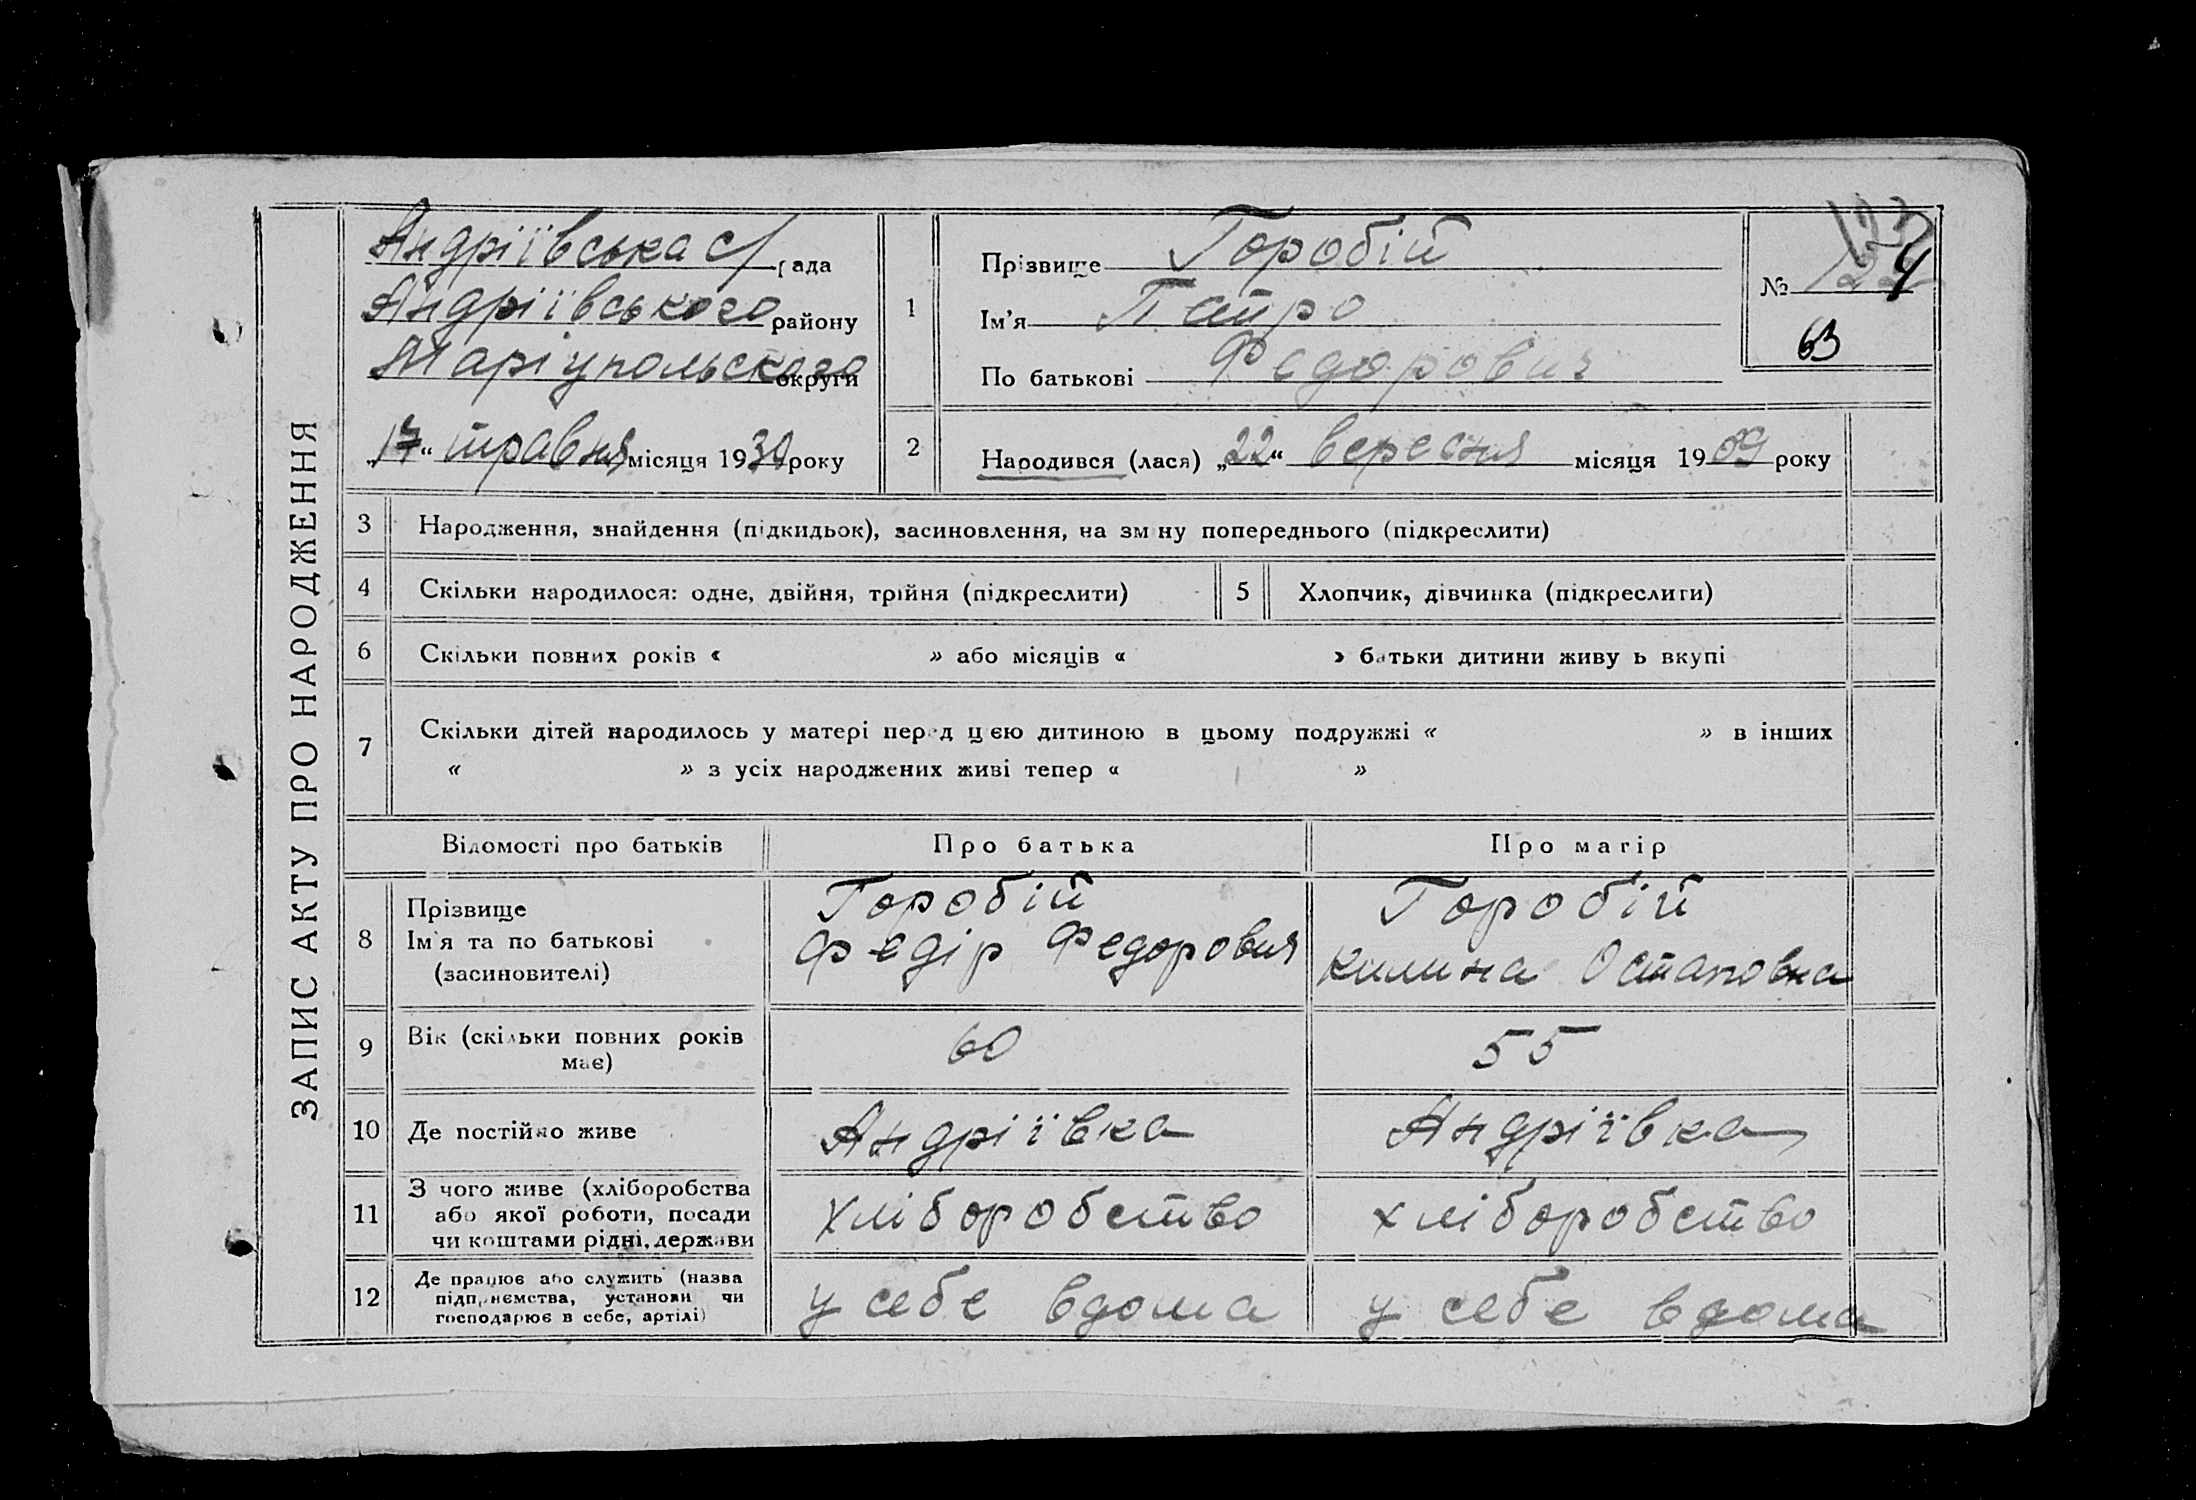 ЗАПИС АКТУ ПРО НАРОДЖЕННЯ
Андріївська с/рада
Андріївського району
Маріупольського округи
„17“ травня місяця 1930 року
1
Прізвище Горобій
Ім'я Петро
По батькові Федорович
№ 4
63
2
Народився (лася) „22“ вересня місяця 1909 року
3 Народження, знайдення (підкидьок), засиновлення, на зміну попереднього (підкреслити)
4 Скільки народилося: одне, двійня, трійня (підкреслити) 5 Хлопчик, дівчинка (підкреслити)
6 Скільки повних років « » або місяців « » батьки дитини живуть вкупі
7 Скільки дітей народилось у матері перед цією дитиною в цьому подружжі « » в інших
« » з усіх народжених живі тепер « »
Відомості про батьків Про батька Про матір
8
Прізвище
Ім'я та по батькові
(засиновителі)
Горобій
Федір Федорович
Горобій
Килина Остаповна
9 Вік (скільки повних років
має)
60
55
10 Де постійно живе Андріївка Андріївка
11
З чого живе (хліборобства
або якої роботи, посади
чи коштами рідні, держави
хліборобство
хліборобство
12
Де працює або служить (назва
підприємства, установи чи
господарює в себе, артілі)
у себе вдома
у себе вдома